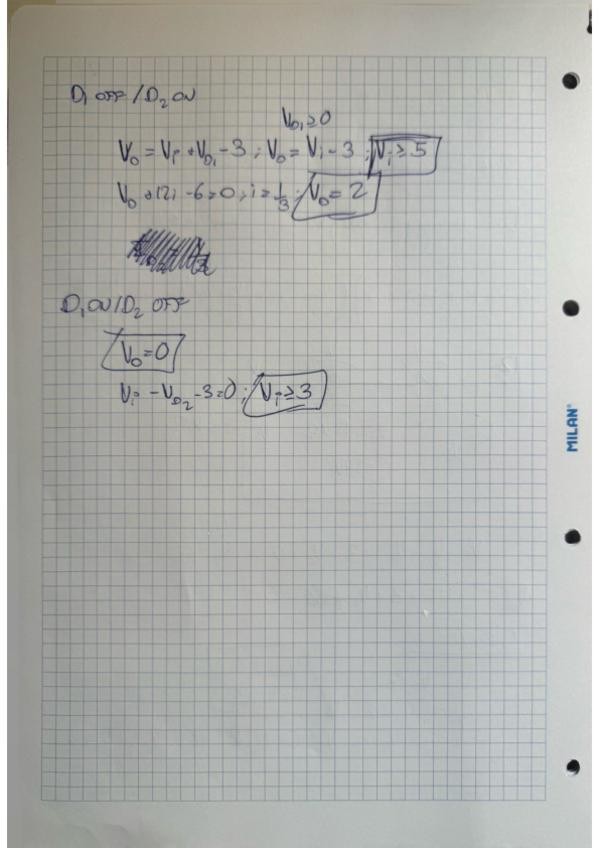 D₁ OFF / D₂ ON
V_D₁ ≥ 0
V₀ = Vi + V_D₁ - 3 ; V₀ = Vi - 3 ; Vi ≥ 5
V₀ + 12i - 6 = 0 ; i = 1/3 ; V₀ = 2
D₁ ON / D₂ OFF
V₀ = 0
Vi - V_D₂ - 3 = 0 ; Vi ≥ 3
MILAN